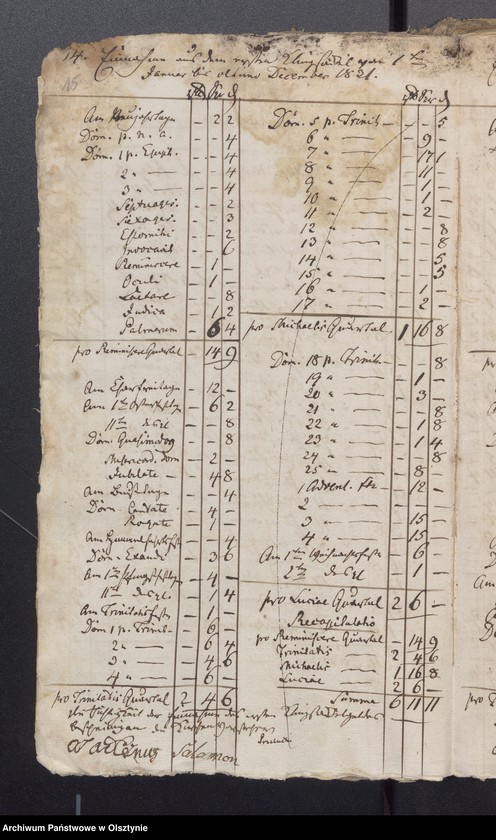 14. Einnahme aus dem ersten Klingsäckel vom 1ten
15 Januar bis ultimo December 1821.
Am Neujahrstage – 2 2
Dom. p. n. a. – – 4
Dom. 1 p. Epiph. – – 4
2 " – – 4
3 " – – 4
Septuages. – – 2
Sexages. – – 3
Estomihi – – 2
Invocavit – – 6
Reminiscere – 1 –
Oculi – 1 –
Laetare – – 8
Judica – 1 2
Palmarum – 6 4
pro Reminiscere Quartal – 14 9
Am Charfreitage – 12 –
Am 1ten Osterfesttage – 6 2
IIten – – 8
Dom. Quasimodog – – 8
Misericord. Dom – 2 –
Jubilate – 4 8
Am Bußtage – – 4
Dom. Cantate – 4 –
Rogate – 1 –
Am Himmelfahrtsfeste – – 4
Dom. Exaudi – 3 6
Am 1ten Pfingstfesttage – 4 –
IIten – 1 4
Am Trinitatisfeste – 1 –
Dom 1 p. Trinit. – 6 –
2 " – 6 4
3 " – 4 6
4 " – 6 –
pro Trinitatis Quartal 2 4 6
Dom. 5 p. Trinit. – – 5
6 " – 9 –
7 " – 17 1
8 " – 11 –
9 " – 1 –
10 " – 1 –
11 " – 2 –
12 " – – 8
13 " – – 8
14 " – – 5
15 " – – 5
16 " – 1 –
17 " – 2 –
pro Michaelis Quartal 1 16 8
Dom. 18 p. Trinit. – – 8
19 " – 1 –
20 " – 3 –
21 " – – 8
22 " – 1 8
23 " – 1 4
24 " – – 8
25 " – 8 –
1 Advent – 12 –
2 –
3 " – 15 –
4 " – 15 –
Am 1ten Weihnachtsfeste – 6 –
2ten – 1 –
pro Luciae Quartal 2 6 –
Recapitulatio
pro Reminiscere Quartal – 14 9
Trinitatis 2 4 6
Michaelis 1 16 8
Luciae 2 6 –
Summa 6 11 11
die Richtigkeit der Einnahme des ersten Klingsäckelgeldes
bescheinigen die Kirchenvorsteher
Salamon
Archiwum Państwowe w Olsztynie